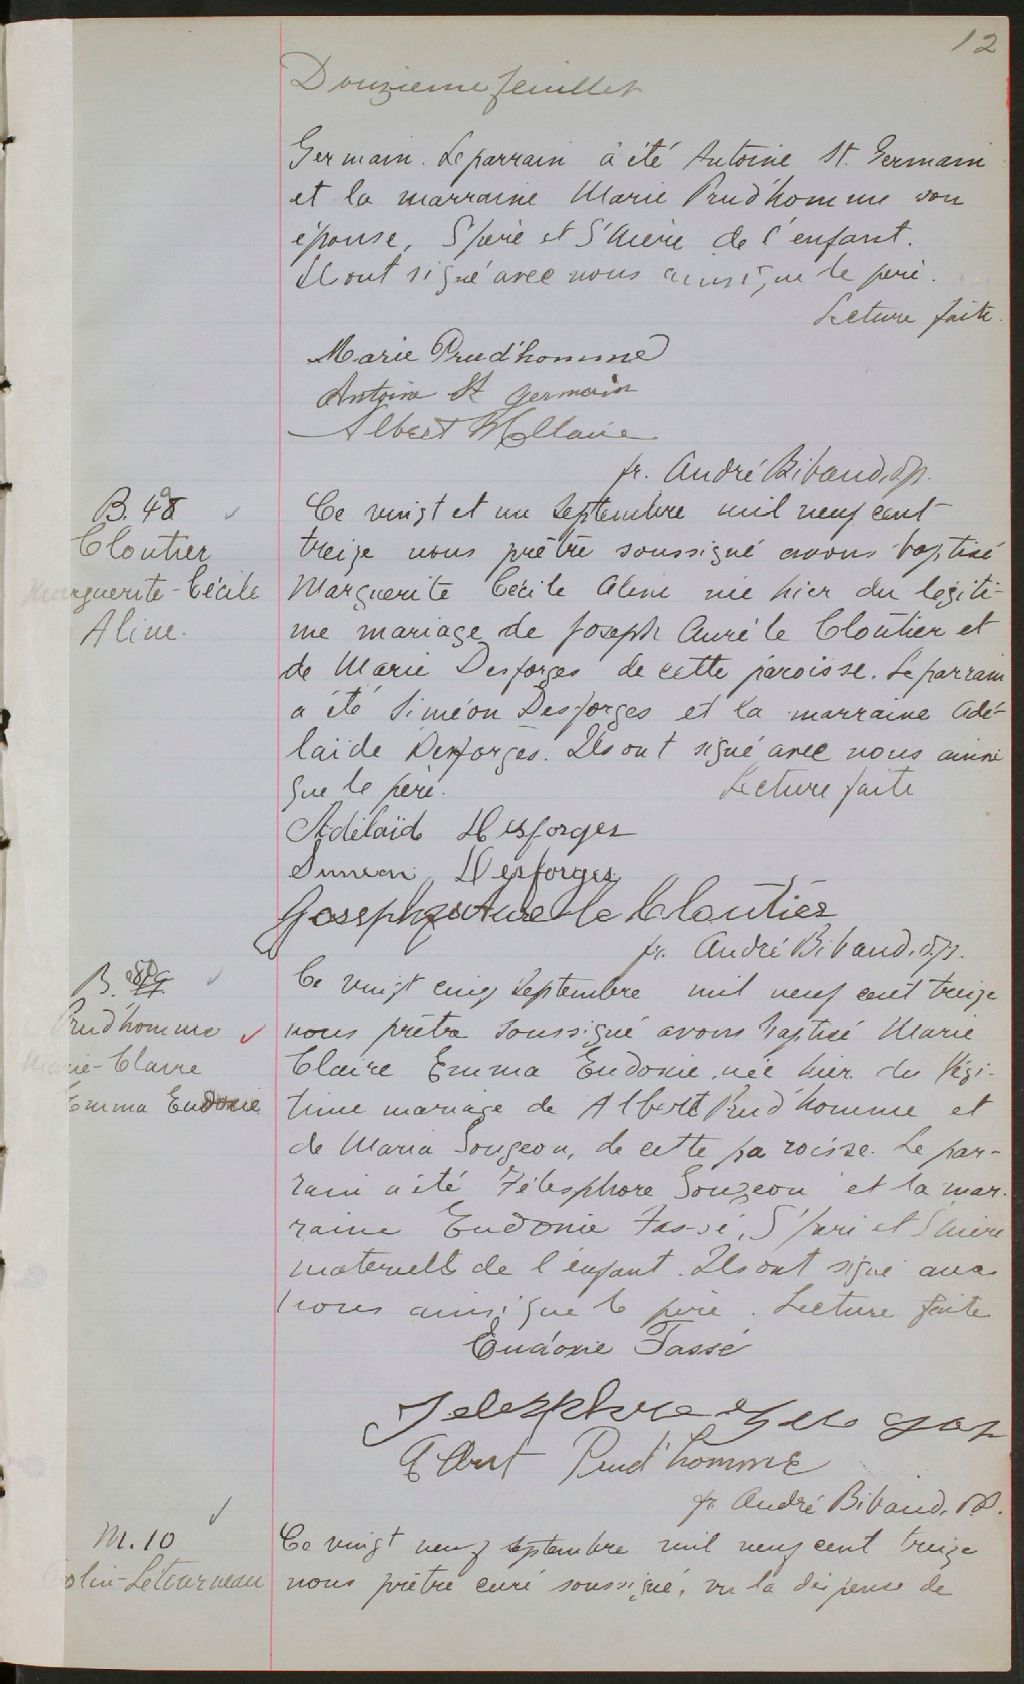 12
Douzieme feuillet
Germain. Le parrain a été Antoine St. Germain
et la marraine Marie Prud'homme son
épouse, G'père et G'mère de l'enfant.
Ils ont signé avec nous ainsi que le père.
Lecture faite.
Marie Prud'homme
Antoine St Germain
Albert
fr. André Bibaud, o.p.
B. 48
Cloutier
Marguerite-Cécile
Aline.
Ce vingt et un Septembre mil neuf cent
treize nous prêtre soussigné avons baptisé
Marguerite Cécile Aline née hier du légiti-
me mariage de Joseph Aurèle Cloutier et
de Marie Desforges de cette paroisse. Le parrain
a été Siméon Desforges et la marraine Adé-
laïde Desforges. Ils ont signé avec nous ainsi
que le père. Lecture faite
Adélaïd Desforges
Simeon Desforges
Joseph Aurele Cloutier
fr. André Bibaud, o.p.
B.
Prud'homme
Marie-Claire
Emma Eudoxie
Ce vingt cinq Septembre mil neuf cent treize
nous prêtre soussigné avons baptisé Marie
Claire Emma Eudoxie née hier du légi-
time mariage de Albert Prud'homme et
de Maria Gougeon, de cette paroisse. Le par-
rain a été Télesphore Gougeon et la mar-
raine Eudoxie Tassé, G'père et G'mère
maternels de l'enfant. Ils ont signé avec
nous ainsi que le père. Lecture faite
Eudoxie Tassé
Telesphore
Albert Prud'homme
fr. André Bibaud, o.p.
M. 10
Colin-Letourneau
Ce vingt neuf septembre mil neuf cent treize
nous prêtre curé soussigné, vu la dispense de